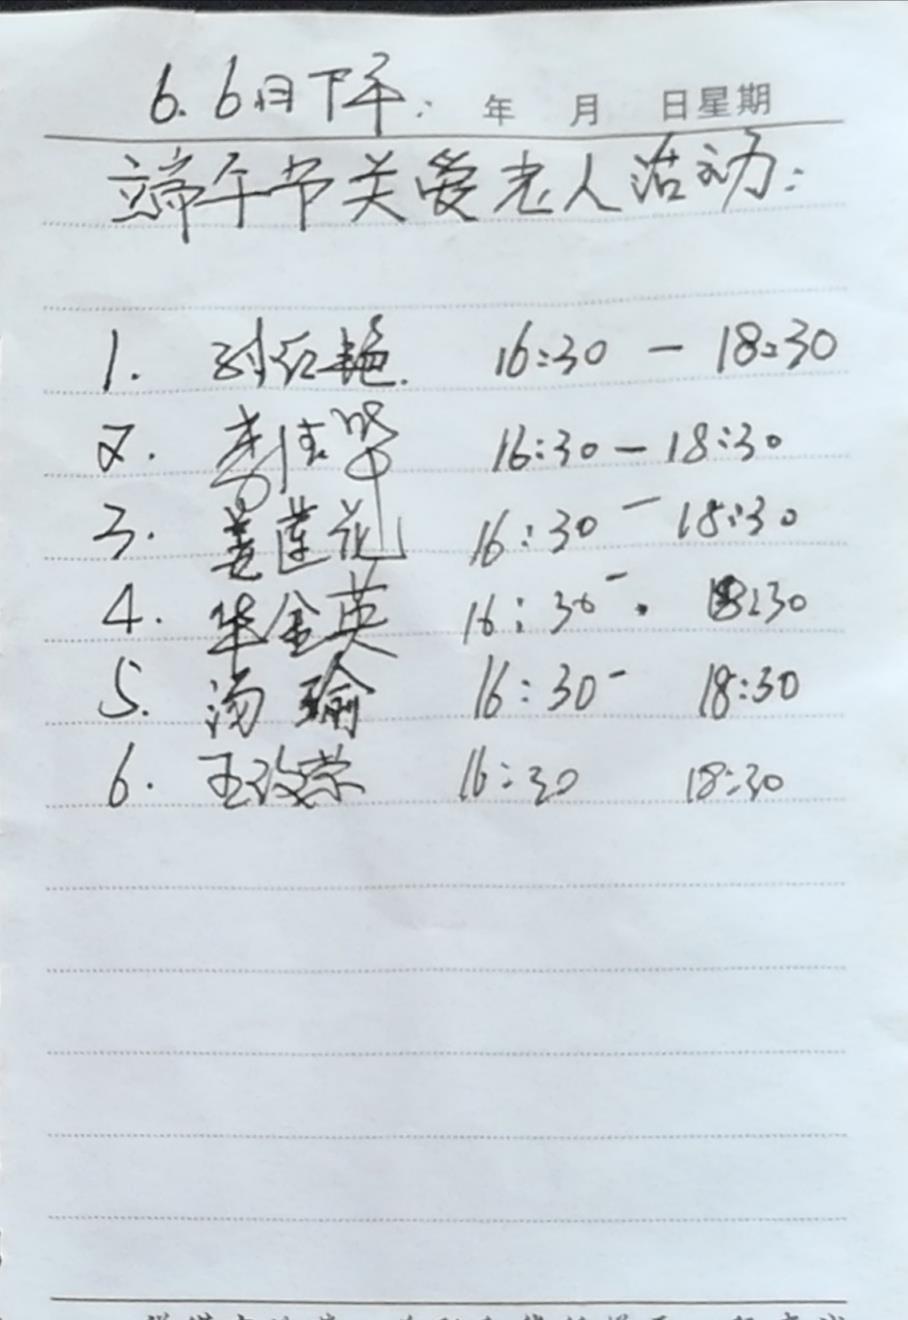 6.6日下午. 年 月 日星期
端午节关爱老人活动:
1. 刘红艳. 16:30 — 18:30
2. 李 16:30 — 18:30
3. 姜莲花 16:30 — 18:30
4. 华金英 16:30 - 18:30
5. 汤瑜 16:30 - 18:30
6. 王改荣 16:30 18:30